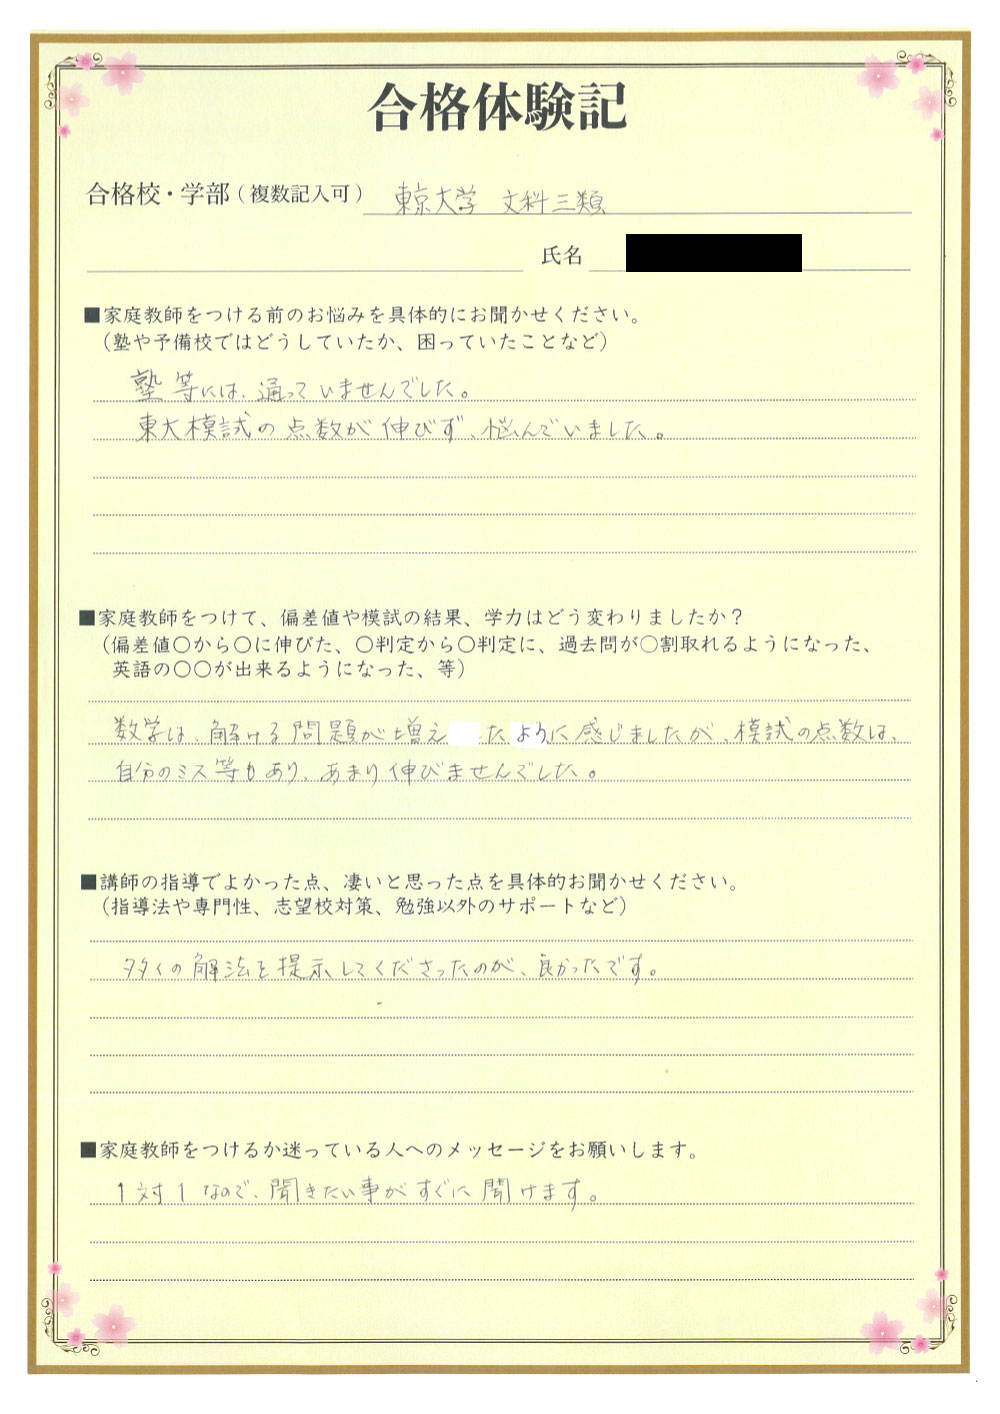 合格体験記
合格校・学部（複数記入可） 東京大学 文科三類
氏名
■家庭教師をつける前のお悩みを具体的にお聞かせください。
（塾や予備校ではどうしていたか、困っていたことなど）
塾等には、通っていませんでした。
東大模試の点数が伸びず、悩んでいました。
■家庭教師をつけて、偏差値や模試の結果、学力はどう変わりましたか？
（偏差値〇から〇に伸びた、〇判定から〇判定に、過去問が〇割取れるようになった、
英語の〇〇が出来るようになった、等）
数学は、解ける問題が増えたように感じましたが、模試の点数は、
自分のミス等もあり、あまり伸びませんでした。
■講師の指導でよかった点、凄いと思った点を具体的お聞かせください。
（指導法や専門性、志望校対策、勉強以外のサポートなど）
多くの解法を提示してくださったのが、良かったです。
■家庭教師をつけるか迷っている人へのメッセージをお願いします。
1対1なので、聞きたい事がすぐに聞けます。